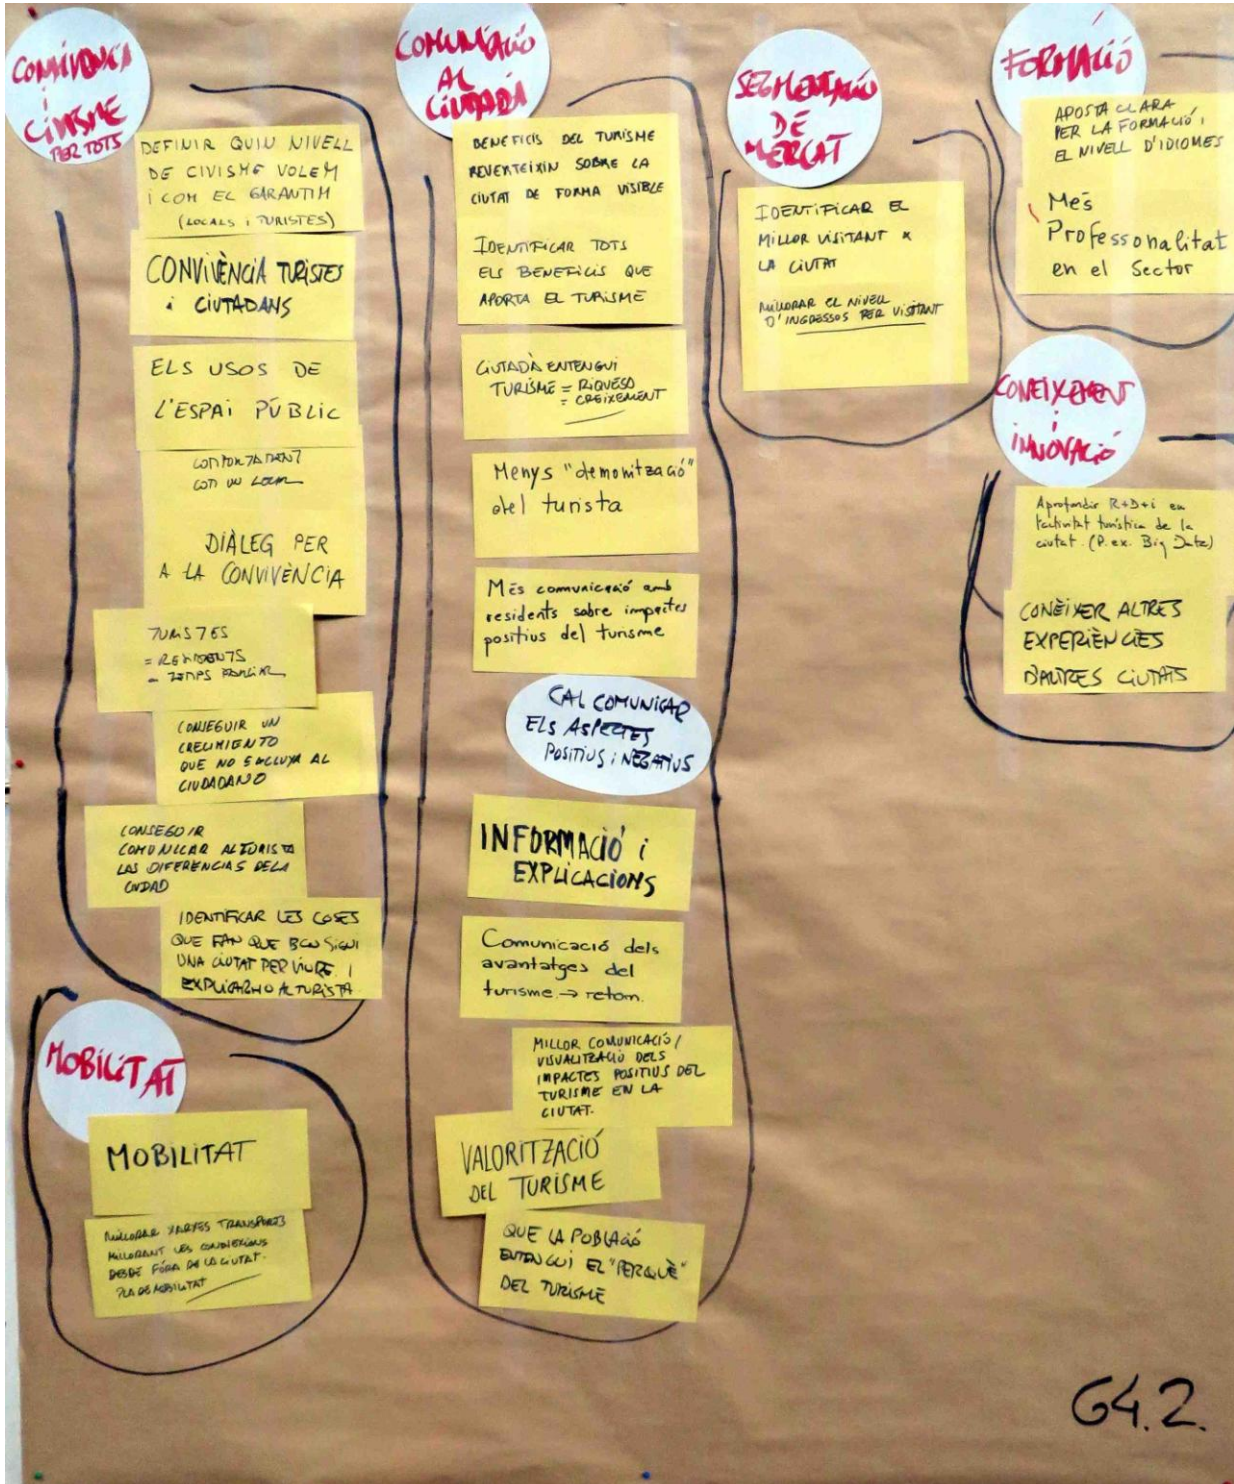 CONVIVÈNCIA
i
CIVISME
PER TOTS
DEFINIR QUIN NIVELL
DE CIVISME VOLEM
i COM EL GARANTIM
(LOCALS i TURISTES)
CONVIVÈNCIA TURISTES
i CIUTADANS
ELS USOS DE
L'ESPAI PÚBLIC
COMPORTAMENT
COM UN LOCAL
DIÀLEG PER
A LA CONVIVÈNCIA
TURISTES
= RESIDENTS
CONSEGUIR UN
CRECIMIENTO
QUE NO EXCLUYA AL
CIUDADANO
CONSEGUIR
COMUNICAR AL TURISTA
LAS DIFERENCIAS DE LA
CIUDAD
IDENTIFICAR LES COSES
QUE FAN QUE BCN SIGUI
UNA CIUTAT PER VIURE i
EXPLICARHO AL TURISTA
MOBILITAT
MOBILITAT
MILLORAR XARXES TRANSPORTS
MILLORANT LES CONNEXIONS
DESDE FÓRA DE LA CIUTAT.
PLA DE MOBILITAT
COMUNICACIÓ
AL
CIUTADÀ
BENEFICIS DEL TURISME
REVERTEIXIN SOBRE LA
CIUTAT DE FORMA VISIBLE
IDENTIFICAR TOTS
ELS BENEFICIS QUE
APORTA EL TURISME
CIUTADÀ ENTENGUI
TURISME = RIQUESA
= CREIXEMENT
Menys "demonització"
del turista
Més comunicació amb
residents sobre impactes
positius del turisme
CAL COMUNICAR
ELS ASPECTES
POSITIUS i NEGATIUS
INFORMACIÓ i
EXPLICACIONS
Comunicació dels
avantatges del
turisme → retorn.
MILLOR COMUNICACIÓ/
VISUALITZACIÓ DELS
IMPACTES POSITIUS DEL
TURISME EN LA
CIUTAT.
VALORITZACIÓ
DEL TURISME
QUE LA POBLACIÓ
ENTENGUI EL "PERQUÈ"
DEL TURISME
SEGMENTACIÓ
DE
MERCAT
IDENTIFICAR EL
MILLOR VISITANT x
LA CIUTAT
MILLORAR EL NIVELL
D'INGRESSOS PER VISITANT
FORMACIÓ
APOSTA CLARA
PER LA FORMACIÓ i
EL NIVELL D'IDIOMES
Més
Professonalitat
en el Sector
CONEIXEMENT
i
INNOVACIÓ
Aprofundir R+D+i en
l'activitat turística de la
ciutat. (P. ex. Big Data)
CONÈIXER ALTRES
EXPERIÈNCIES
D'ALTRES CIUTATS
G4.2.